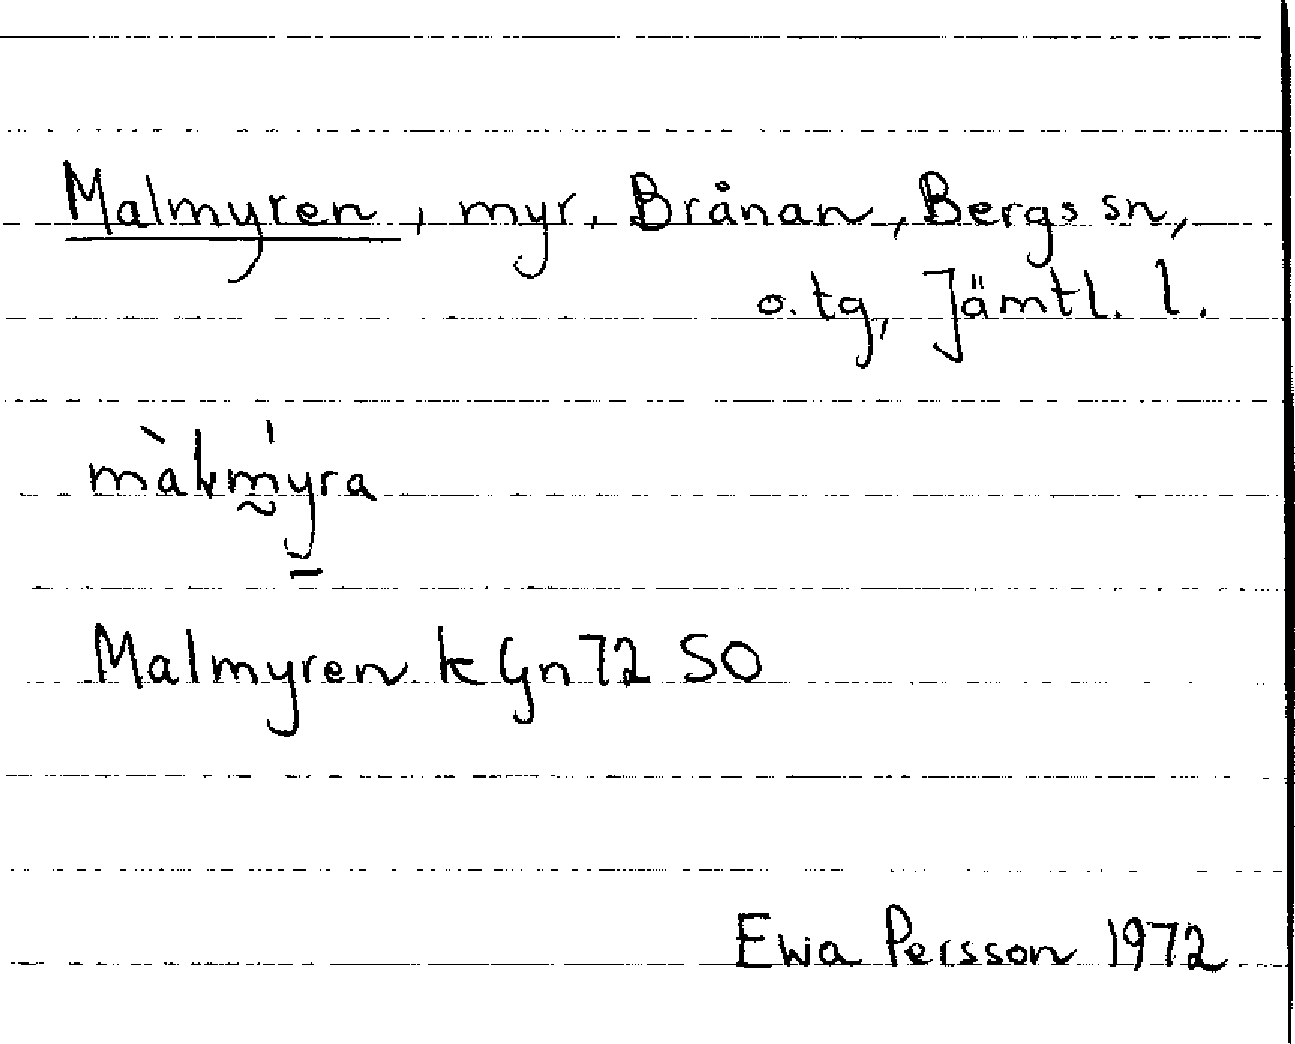 Malmyren, myr, Brånan, Bergs sn,
o. tg, Jämtl. l.
Malmyren k Gn 72 SO
Ewa Persson 1972